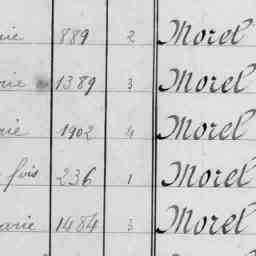 rie 889 2 Morel
rie 1389 3 Morel
rie 1902 4 Morel
fois 236 1 Morel
arie 1484 3 Morel